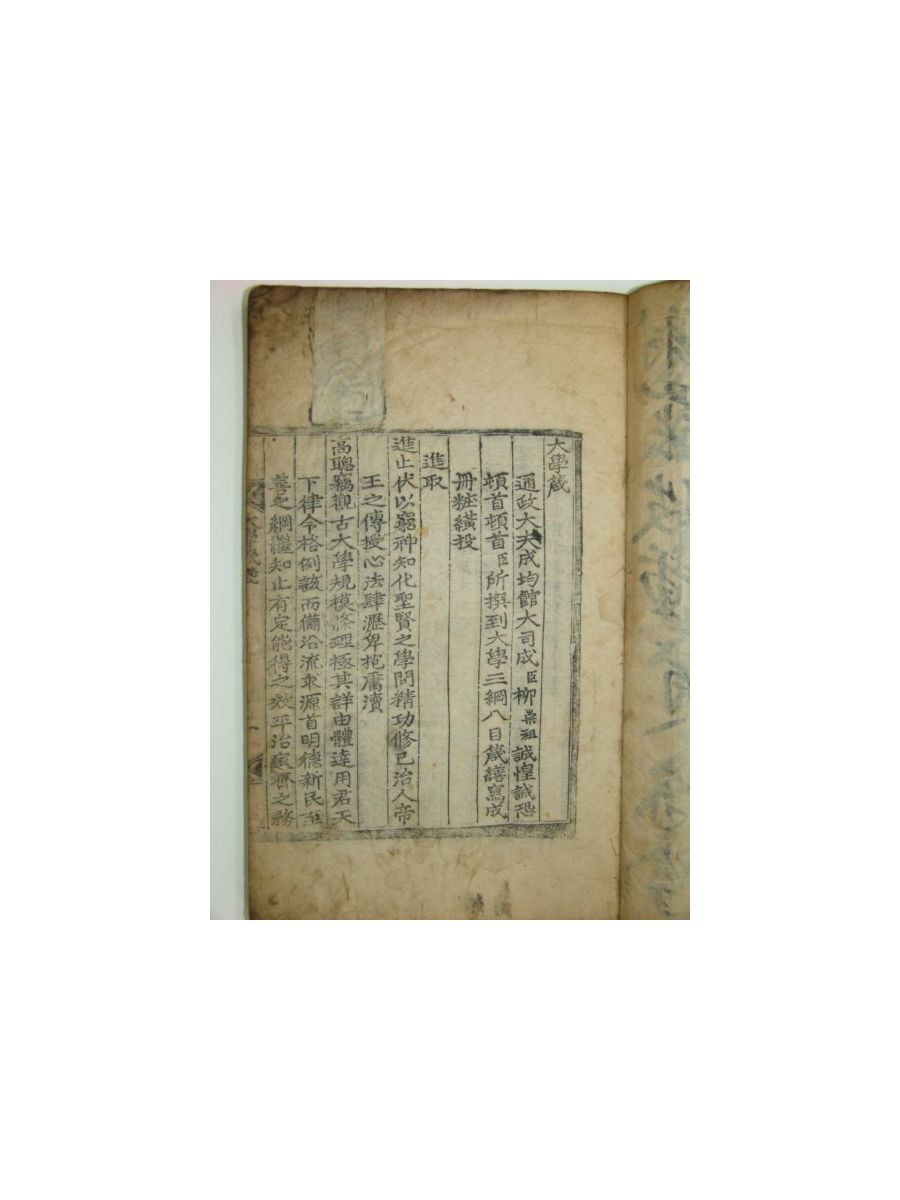 大學箴
通政大夫成均館大司成臣柳崇祖誠惶誠恐
頓首頓首臣所撰到大學三綱八目箴繕寫成
冊粧䌙投
進取
進止伏以窮神知化聖賢之學問精功修已治人帝
王之傳授心法肆瀝卑抱庸瀆
高聰竊觀古大學規模條理極其詳由體達用君天
下律令格例該而備沿流求源首明德新民至
善之綱繼知止有定能得之效平治家齊之務